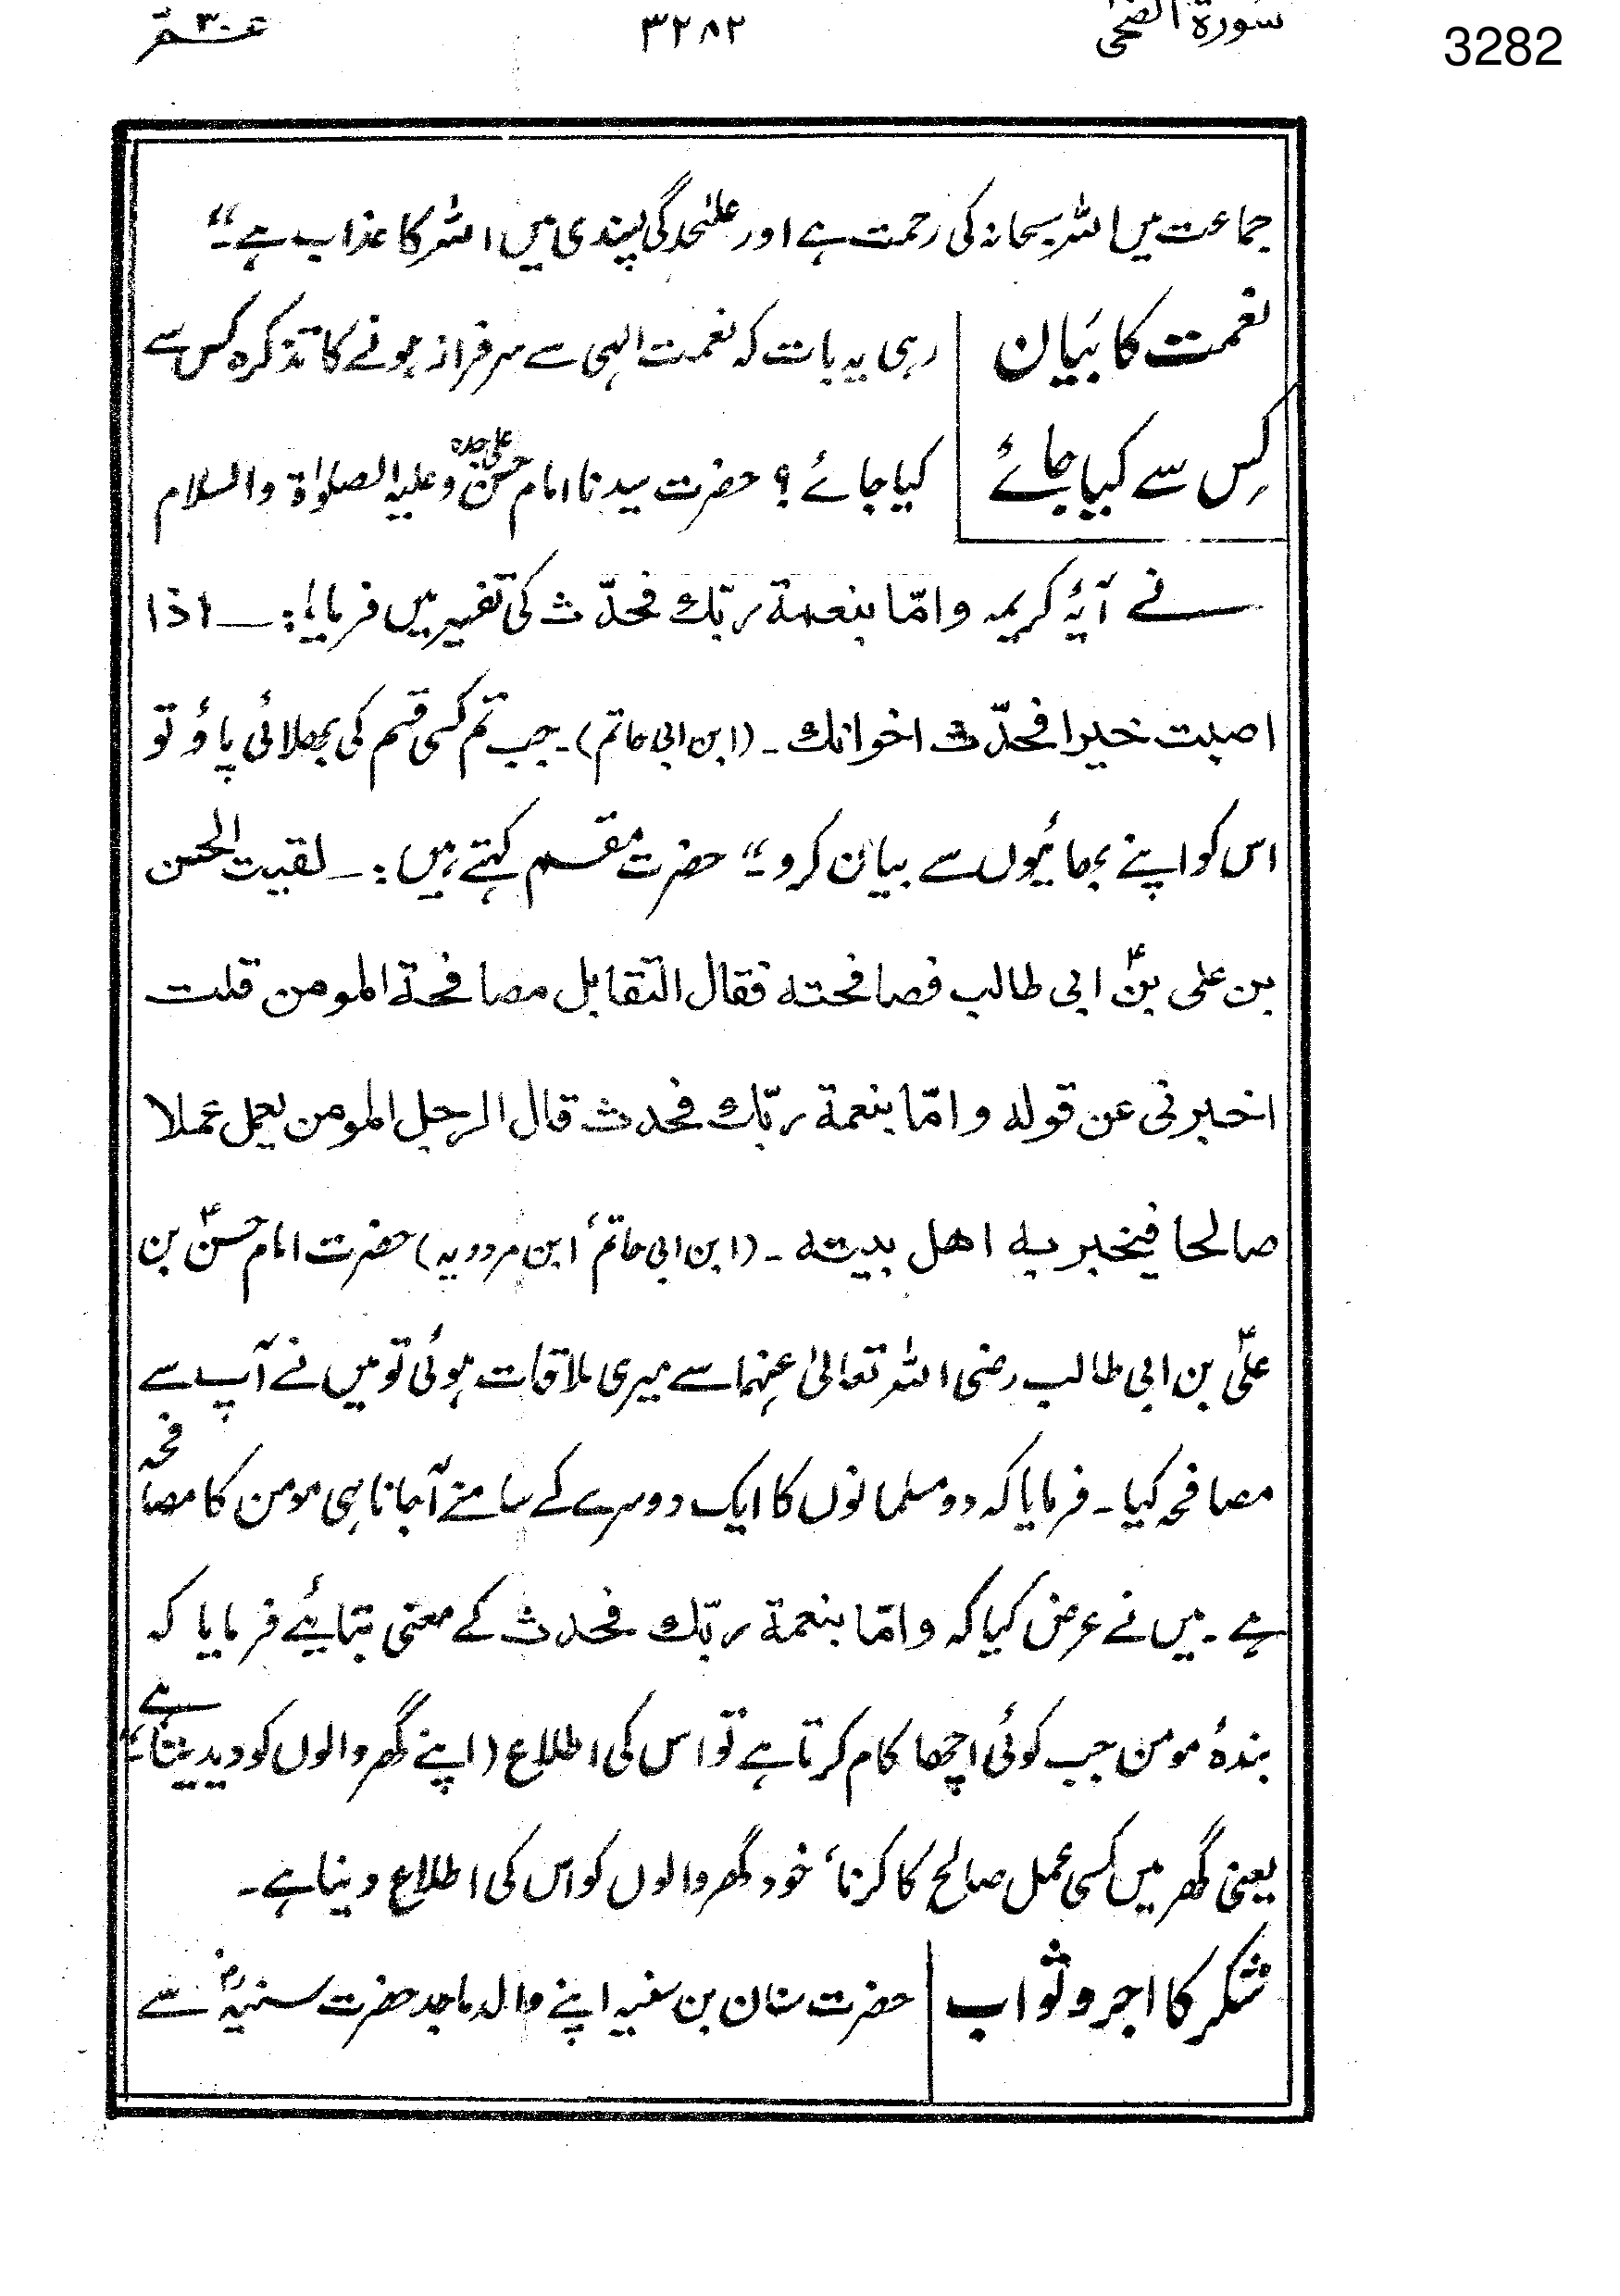 سورة الضحی ۳۲۸۲ عمّ ۳۰
3282
جماعت میں اللہ سبحانہ کی رحمت ہے اور علٰحدگی پسندی میں اللہ کا عذاب ہے۔“
نعمت کا بَیان رہی یہ بات کہ نعمت الہی سے سرفراز ہونے کا تذکرہ کس سے
کِس سے کیا جائے کیا جائے؟ حضرت سیدنا امام حسن علی جدہ وعلیہ الصلوٰۃ والسلام
نے آیۂ کریمہ وامّا بنعمة ربّك فحدّث کی تفسیر میں فرمایا:۔ اذا
اصبت خیرا فحدّث اخوانك۔ (ابن ابی حاتم)۔ جب تم کسی قسم کی بھلائی پاؤ تو
اس کو اپنے بھائیوں سے بیان کرو۔“ حضرت مقسم کہتے ہیں:۔ لقیت الحسن
بن علی بنؓ ابی طالب فصافحته فقال التقابل مصافحة المومن قلت
اخبرنی عن قوله وامّا بنعمة ربّك فحدث قال الرجل المومن یعمل عملا
صالحا فیخبر به اهل بیته۔ (ابن ابی حاتم، ابن مردویہ) حضرت امام حسنؑ بن
علیؑ بن ابی طالب رضی اللہ تعالیٰ عنہما سے میری ملاقات ہوئی تو میں نے آپ سے
مصافحہ کیا۔ فرمایا کہ دو مسلمانوں کا ایک دوسرے کے سامنے آجانا ہی مومن کا مصافحہ
ہے۔ میں نے عرض کیا کہ وامّا بنعمة ربّك فحدث کے معنی بتائیے فرمایا کہ
بندۂ مومن جب کوئی اچھا کام کرتا ہے تو اس کی اطلاع (اپنے گھر والوں کو دیدیتا ہے“
یعنی گھر میں کسی عمل صالح کا کرنا، خود گھر والوں کو اس کی اطلاع دینا ہے۔
شکر کا اجر و ثواب حضرت سنان بن سنیہ اپنے والد ماجد حضرت سنیہؓ سے